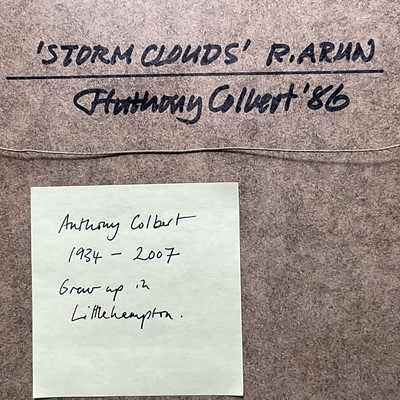 'STORM CLOUDS' R.ARUN
Anthony Colbert '86
Anthony Colbert
1934 – 2007
Grew up in
Littlehampton.